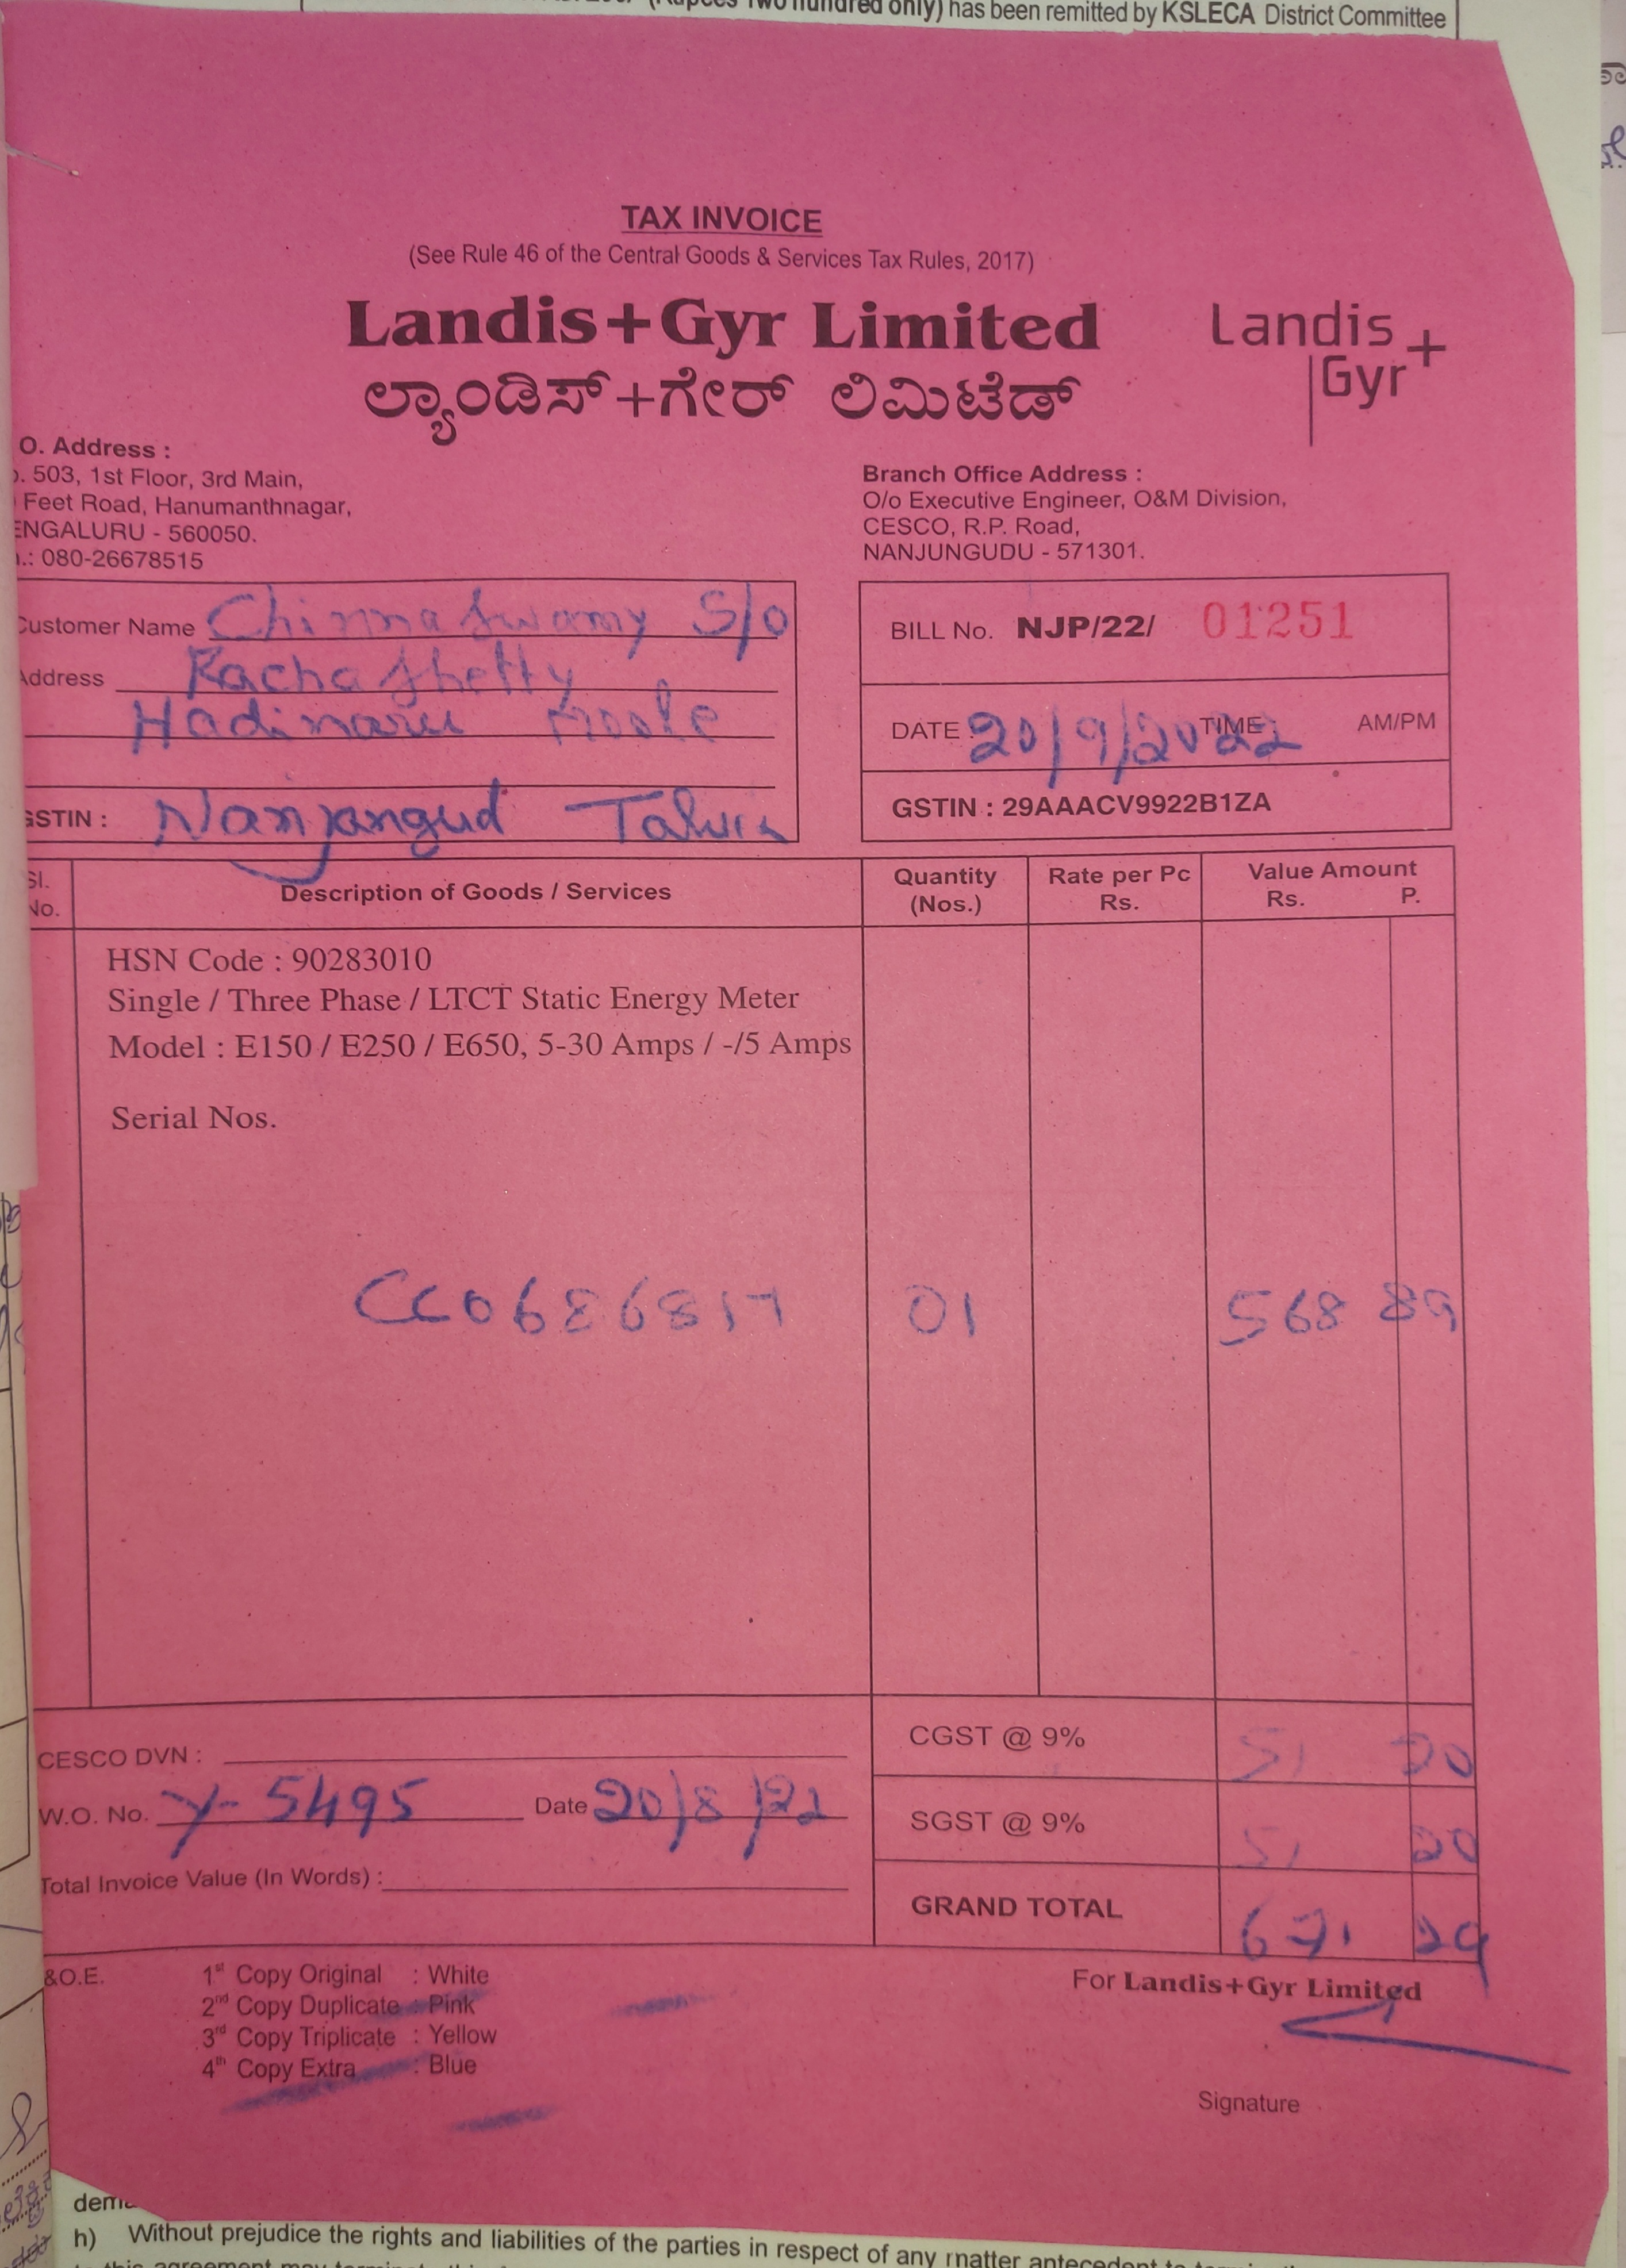 (Rupees Two hundred only) has been remitted by KSLECA District Committee
TAX INVOICE
(See Rule 46 of the Central Goods & Services Tax Rules, 2017)
Landis+Gyr Limited
ಲ್ಯಾಂಡಿಸ್+ಗೇರ್ ಲಿಮಿಟೆಡ್
Landis+
Gyr
O. Address :
. 503, 1st Floor, 3rd Main,
Feet Road, Hanumanthnagar,
ENGALURU - 560050.
.: 080-26678515
Branch Office Address :
O/o Executive Engineer, O&M Division,
CESCO, R.P. Road,
NANJUNGUDU - 571301.
Customer Name Chinnaswamy S/o
Address Rachashetty
Hadinaru Moole
GSTIN : Nanjangud Taluk
BILL No. NJP/22/ 01251
DATE 20/9/2022 TIME AM/PM
GSTIN : 29AAACV9922B1ZA
Sl. No. Description of Goods / Services Quantity (Nos.) Rate per Pc Rs. Value Amount Rs. P.
HSN Code : 90283010
Single / Three Phase / LTCT Static Energy Meter
Model : E150 / E250 / E650, 5-30 Amps / -/5 Amps
Serial Nos.
CC0686817 01 568 89
CESCO DVN :
W.O. No. Y-5495 Date 20/8/22
Total Invoice Value (In Words) :
CGST @ 9% 51 20
SGST @ 9% 51 20
GRAND TOTAL 671 29
&O.E.
1st Copy Original : White
2nd Copy Duplicate : Pink
3rd Copy Triplicate : Yellow
4th Copy Extra : Blue
For Landis+Gyr Limited
Signature
h) Without prejudice the rights and liabilities of the parties in respect of any matter antecedent to